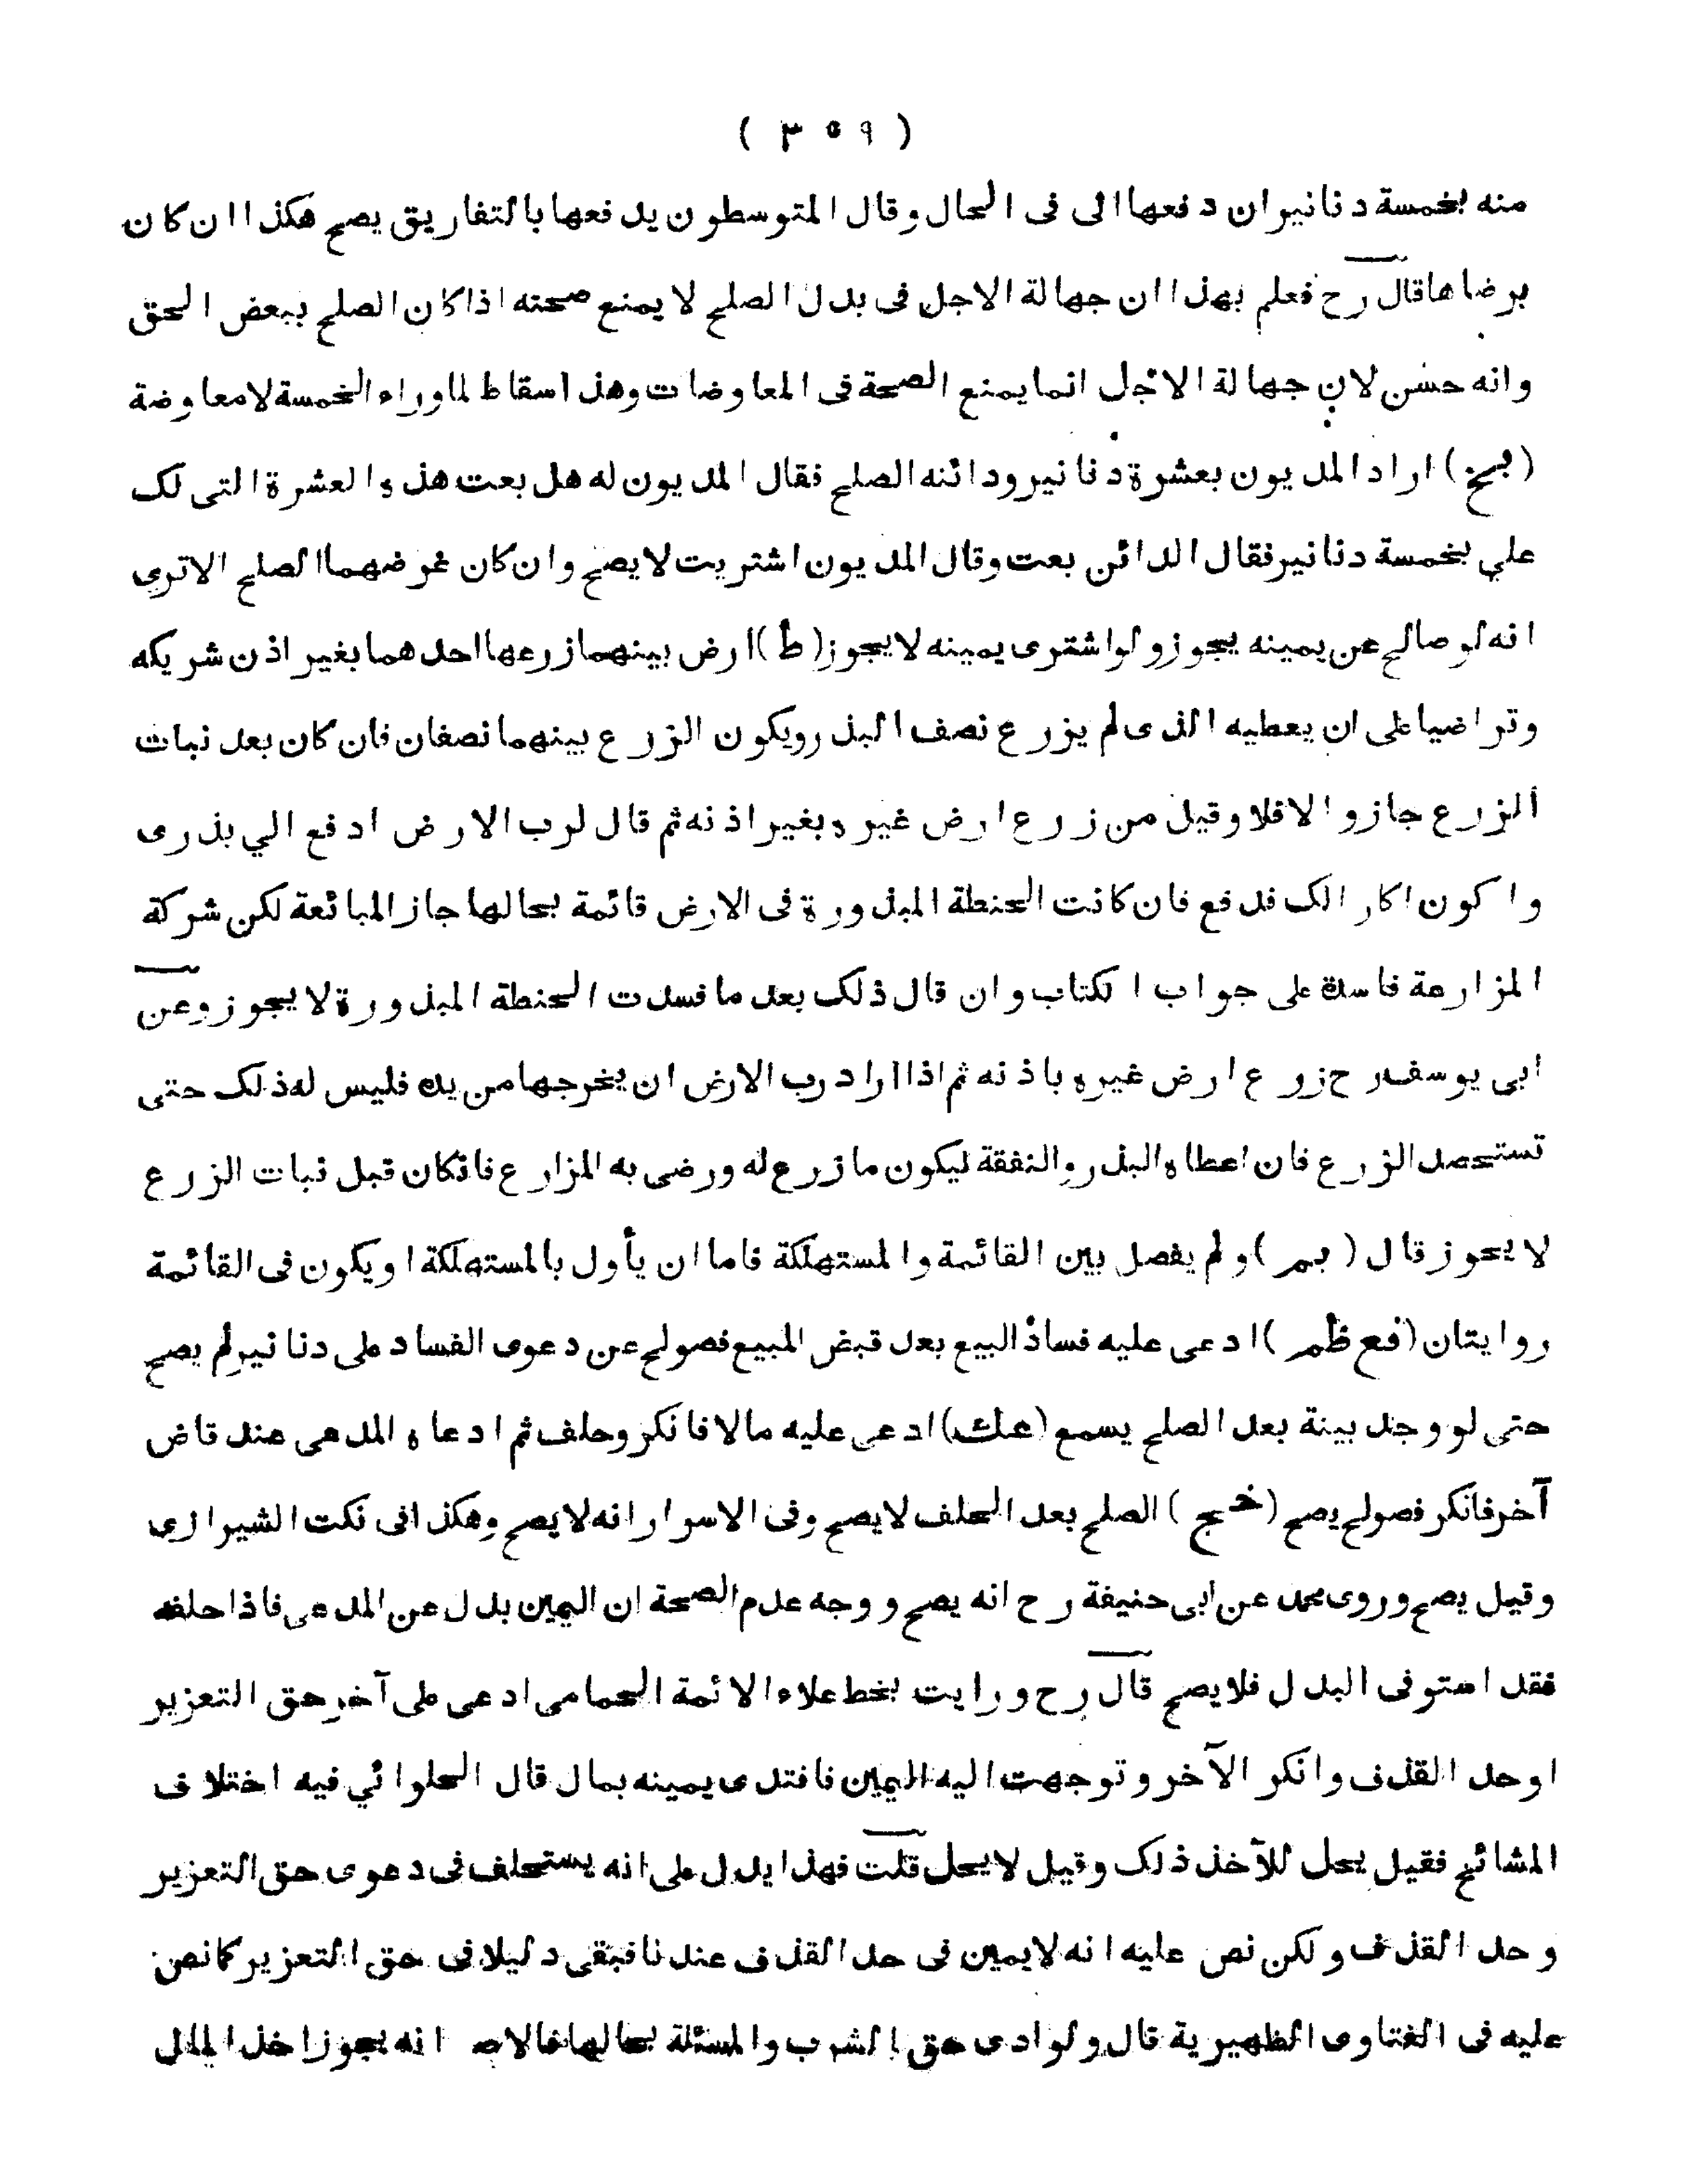 ( ٣٥٩ )
منه بخمسة دنانير ان دفعها الى فى الحال وقال المتوسطون يدفعها بالتفاريق يصح هكذا ان كان
برضاها قال رح فعلم بهذا ان جهالة الاجل فى بدل الصلح لا يمنع صحته اذا كان الصلح ببعض الحق
وانه حسن لان جهالة الاجل انما يمنع الصحة فى المعاوضات وهذا اسقاط لما وراء الخمسة لا معاوضة
(بخ) اراد المديون بعشرة دنانير ودائنه الصلح فقال المديون له هل بعت هذه العشرة التى لك
علي بخمسة دنانير فقال الدائن بعت وقال المديون اشتريت لا يصح وان كان غرضهما الصلح الا ترى
انه لو صالح عن يمينه يجوز ولو اشترى يمينه لا يجوز (ط) ارض بينهما زرعها احدهما بغير اذن شريكه
وتراضيا على ان يعطيه الذى لم يزرع نصف البذر ويكون الزرع بينهما نصفان فان كان بعد نبات
الزرع جاز والا فلا وقيل من زرع ارض غيره بغير اذنه ثم قال لرب الارض ادفع الي بذرى
واكون اكارا لك فدفع فان كانت الحنطة المبذورة فى الارض قائمة بحالها جاز المبائعة لكن شركة
المزارعة فاسدة على جواب الكتاب وان قال ذلك بعد ما فسدت الحنطة المبذورة لا يجوز وعن
ابى يوسف رح زرع ارض غيره باذنه ثم اذا اراد رب الارض ان يخرجها من يده فليس له ذلك حتى
تستحصد الزرع فان اعطاه البذر والنفقة ليكون ما زرع له ورضى به المزارع فانكان قبل نبات الزرع
لا يجوز قال (بم) ولم يفصل بين القائمة والمستهلكة فاما ان يأول بالمستهلكة او يكون فى القائمة
روايتان (فع ظم) ادعى عليه فساد البيع بعد قبض المبيع فصولح عن دعوى الفساد على دنانير لم يصح
حتى لو وجد بينة بعد الصلح يسمع (عك) ادعى عليه مالا فانكر وحلف ثم ادعاه المدعى عند قاض
آخر فانكر فصولح يصح (خج) الصلح بعد الحلف لا يصح وفى الاسرار انه لا يصح وهكذا فى نكت الشيرازى
وقيل يصح وروى محمد عن ابى حنيفة رح انه يصح ووجه عدم الصحة ان اليمين بدل عن المدعى فاذا حلفه
فقد استوفى البدل فلا يصح قال رح ورايت بخط علاء الائمة الحمامى ادعى على آخر حق التعزير
او حد القذف وانكر الآخر وتوجهت اليه اليمين فافتدى يمينه بمال قال الحلوائي فيه اختلاف
المشائخ فقيل يحل للآخذ ذلك وقيل لا يحل قلت فهذا يدل على انه يستحلف فى دعوى حق التعزير
وحد القذف ولكن نص عليه انه لا يمين فى حد القذف عندنا فبقى دليلا فى حق التعزير كما نص
عليه فى الفتاوى الظهيرية قال ولو ادى حق الشرب والمسئلة بحالها فالاصح انه يجوز اخذ المال